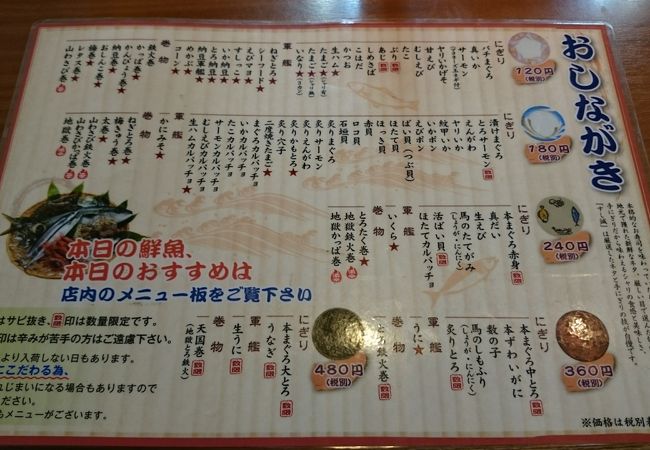 おしながき
120円
(税別)
にぎり
バチまぐろ
サーモン
真いか
ヤリいかげそ
甘えび
むしえび
たこ
ぶり
あじ
しめさば
こはだ
かつお
生ハム★
たまご★
たまご★
いなり★
軍艦
シーフード★
ねぎとろ★
えびマヨ★
すじっこ★
いか納豆★
とろ納豆★
納豆軍艦★
めかぶ★
コーン★
巻物
鉄火巻★
かっぱ巻★
かんぴょう巻★
納豆巻★
おしんこ巻★
梅巻★
レタス巻★
山わさび巻
180円
(税別)
にぎり
漬けまぐろ
とろサーモン
えんがわ
ヤリいか
紋甲いか
いかポン
えびポン
ばい貝(つぶ貝)
ほたて貝
ほっき貝
赤貝
ロコ貝
石垣貝
炙りまぐろ
炙りサーモン
炙りえんがわ
炙りかもとろ★
炙り穴子
二度焼きたまご★
まぐろカルパッチョ
いかカルパッチョ
たこカルパッチョ
むしえびカルパッチョ
サーモンカルパッチョ
生ハムカルパッチョ★
軍艦
かにみそ★
巻物
ねぎとろ巻★
梅きゅう巻★
太巻★
山わさび鉄火巻
山わさびかっぱ巻
地獄巻
240円
(税別)
にぎり
本まぐろ赤身
真だい
生えび
馬のたてがみ
(しょうが・にんにく)
活ばい貝
ほたてカルパッチョ
軍艦
いくら★
巻物
とろたく巻★
地獄鉄火巻
地獄かっぱ巻
360円
(税別)
にぎり
本まぐろ中とろ
本ずわいがに
数の子
馬のしもふり
(しょうが・にんにく)
炙りとろ
軍艦
うに★
巻物
とろ鉄火巻
480円
(税別)
にぎり
本まぐろ大とろ
うなぎ
軍艦
生うに
巻物
天国巻
(地獄とろ鉄火)
本日の鮮魚、
本日のおすすめは
店内のメニュー板をご覧下さい
はサビ抜き、数限印は数量限定です。
印は辛みが苦手の方はご遠慮下さい。
より入荷しない日もあります。
ここだわる為、
れじまいになる場合もありますので
ださい。
もメニューがございます。
※価格は税別